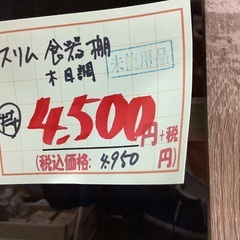 スリム 食器棚
木目調
未使用品
特 4,500円+税
(税込価格: 4,950円)